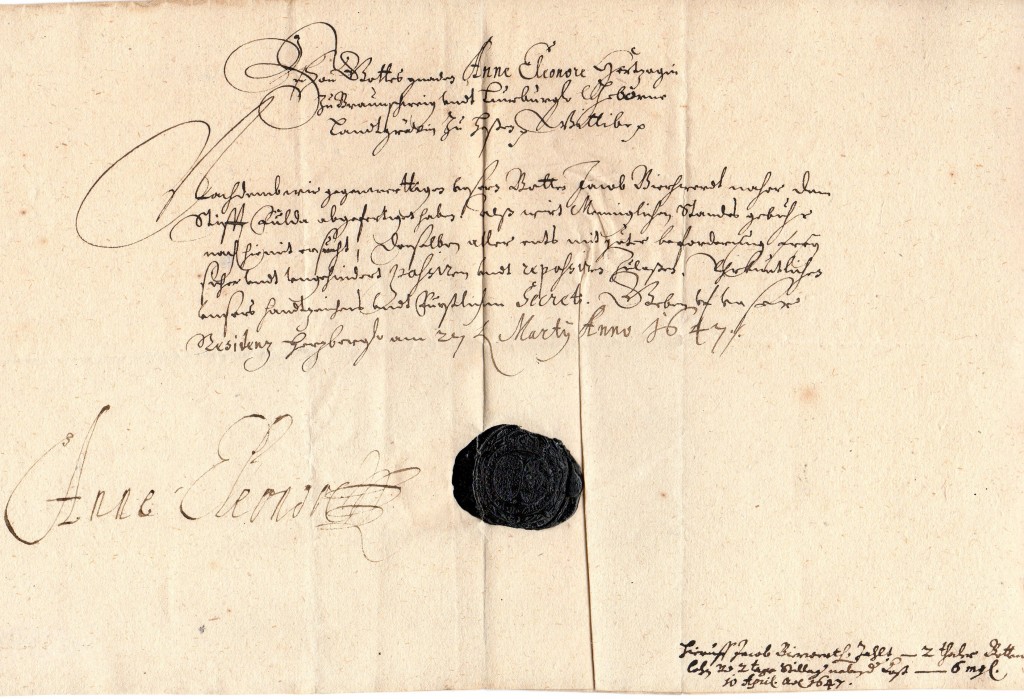 Von Gottes gnaden Anne Eleonore Hertzogin
Zu Braunschweig undt Luneburgk Geborne
Landtgrävin Zu Hessen Wittibe
Nachdem wir gegenwerttigen unsern Botten Jacob Bierwerdt naher dem
Stifft Fulda abgefertiget haben, Alß wirt Menniglichen Standes gebühr
nach hiemit ersucht, denselben aller orts mit guter beforderung frey
sicher undt ungehindert passiren undt repassiren Zulassen. Uhrkuntlichen
unsers handtzeichens undt Furstlichen Secrets. Geben uf unser
Residenz Hertzbergk am 27 t Martÿ Anno 1647
Anne Eleonore
Hierauff Jacob Bierwerth Zahlt — 2 thaler Botten
lohn vor 2 tage Stillag — 6 mgl.
10 April. Ao 1647.